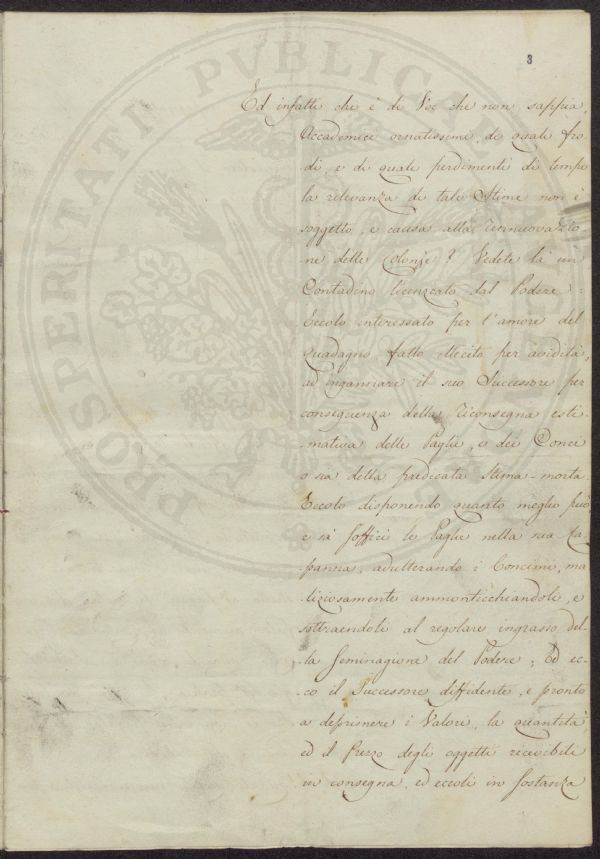 3
Ed infatti che è di Voi che non sappia,
Accademici ornatissimi, di quali fro
di, e di quale perdimenti di tempo
la rilevanza di tali Stime non è
soggetto, e causa alla rinnuovazio
ne delle Colonje? Vedete là un
Contadino licenziato dal Podere:
Eccolo interessato per l'amore del
guadagno, fatto illecito per avidità,
ad ingannare il suo Successore per
conseguenza della riconsegna esti-
mativa delle Paglie, e dei Conci
o sia della predicata Stima-morta.
Eccolo disponendo quanto meglio può
e sà soffici le Paglie nella sua Ca
panna, adulterando i Concimi, ma
liziosamente ammonticchiandoli, e
sottraendoli al regolare ingrasso del-
la Seminagione del Podere; Ed ec-
co il Successore diffidente, e pronto
a deprimere i Valori, la quantità
ed il Prezzo degli oggetti ricevibili
in consegna, ed eccoli in sostanza
PROSPERITATI PVBLICAE